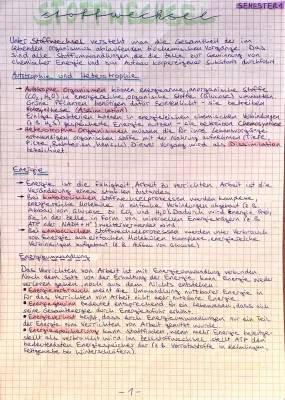 SEMESTER 1
Stoffwechsel
Unter Stoffwechsel versteht man die Gesamtheit der im
lebenden Organismus ablaufenden biochemischen Vorgänge. Das
sind alle Stoffumwandlungen, die die Zelle zur Gewinnung von
chemischer Energie und zum Aufbau körpereigener Substanz durchführt
Autotrophie und Heterotrophie
→ Autotrophe Organismen können energiearme, anorganische Stoffe
(CO₂, H₂O) in energiereiche organische Stoffe (Glucose) umwandeln
Grüne Pflanzen benötigen dafür Sonnenlicht - sie betreiben
Fotosynthese (Assimilation)
Einige Bakterien können in energiereichen chemischen Vorgängen
(z. B. H₂S) gespeicherte Energie nutzen - sie betreiben Chemosynthese
→ Heterotrophe Organismen müssen die für ihre Lebensvorgänge
notwendigen organischen Stoffe mit der Nahrung aufnehmen (Tiere,
Pilze, Bakterien, Mensch). Dieser Vorgang wird als Dissimilation
bezeichnet
Energie
→ Energie ist die Fähigkeit Arbeit zu verrichten. Arbeit ist die
Veränderung eines stabilen Zustandes
→ Bei katabolischen Stoffwechselprozessen werden komplexe,
energiereiche Moleküle in einfache Verbindungen abgebaut (z. B.
Abbau von Glucose zu CO₂ und H₂O). Dadurch wird Energie frei,
die in der Zelle in Form von universellen Energieträgern (z. B.
ATP oder NADH + H⁺) weiterverwendet wird.
→ Bei anabolischen Stoffwechselprozessen werden unter Verbrauch
von Energie aus einfachen Molekülen komplexe, energiereiche
Verbindungen aufgebaut (z. B. Aufbau von Glucose).
Energieumwandlung
Das Verrichten von Arbeit ist mit Energieumwandlung verbunden.
Nach dem Satz von der Erhaltung der Energie, kann Energie weder
verloren gehen, noch aus dem Nichts entstehen.
Energieverbrauch meint die Umwandlung nutzbarer Energie in
für das Verrichten von Arbeit nicht mehr nutzbare Energie.
bedeutet entsprechend für ein Lebewesen, dass sich
seine Gesamtenergie durch Energiezufuhr erhöht.
heißt, dass durch Energieumwandlungen nur ein Teil
der Energie zum Verrichten von Arbeit genutzt wurde.
Energiespeicherung kann stattfinden, wenn mehr Energie bereitge-
stellt als verbraucht wird. Im Zellstoffwechsel stellt ATP den
bedeutendsten Energiespeicher dar (z. B. Vorratsstoffe in Keimlingen,
Fettgewebe bei Winterschläfern)
- 1 -